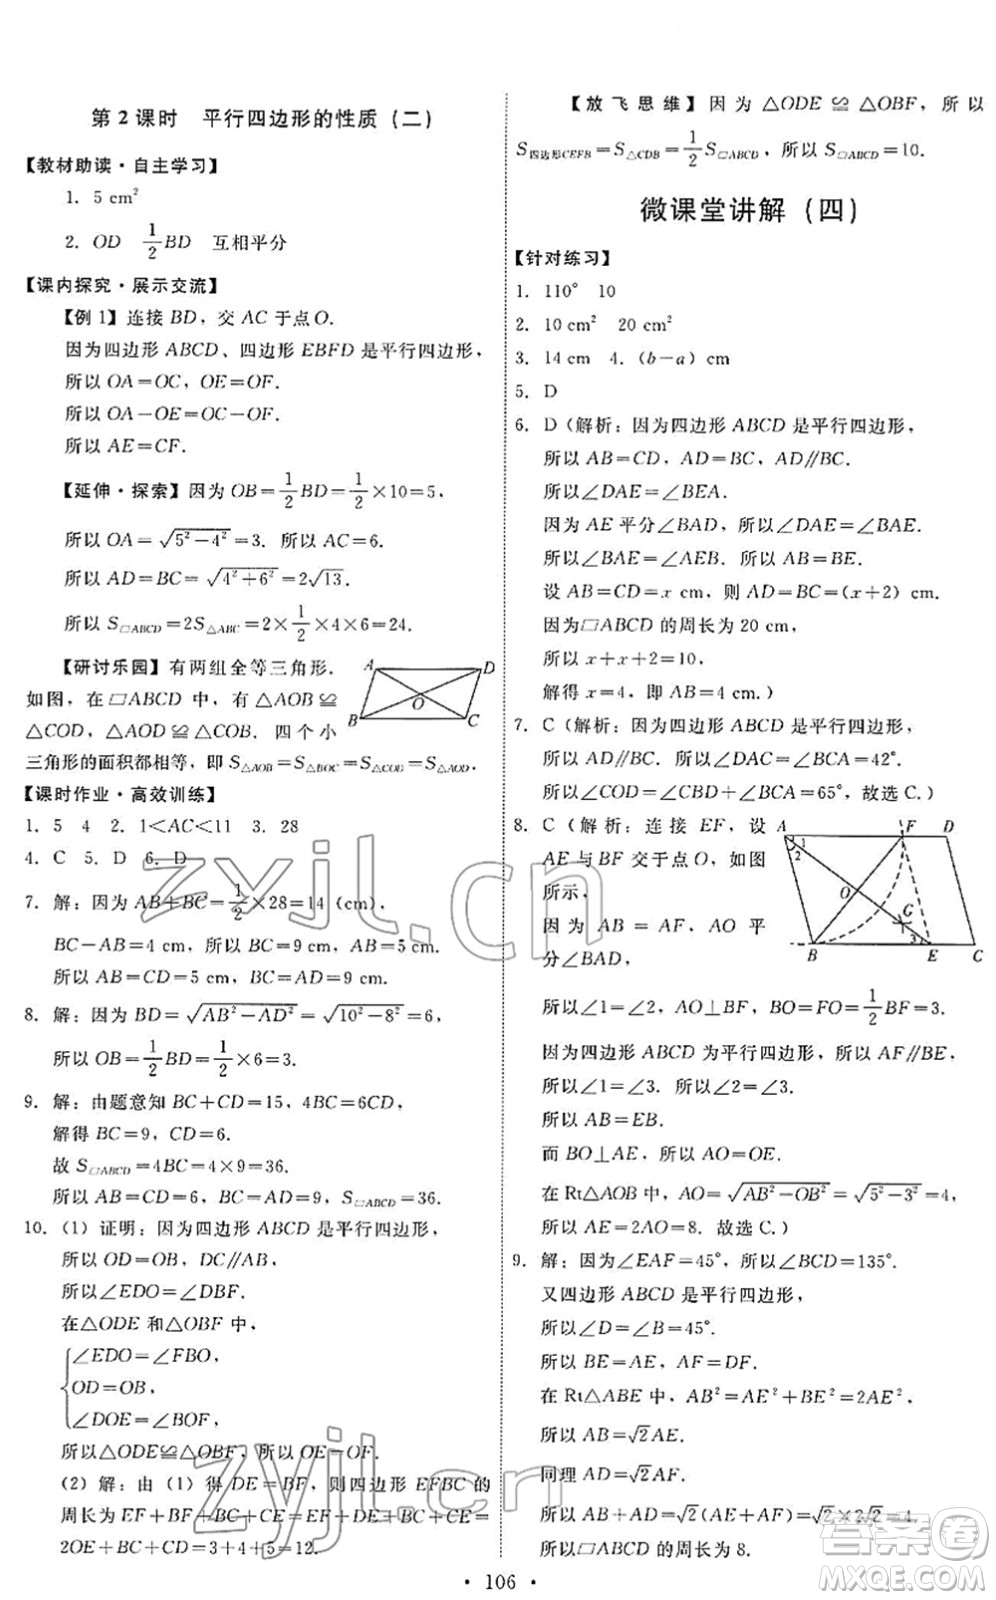 第 2 课时　平行四边形的性质（二）
【教材助读·自主学习】
1. 5 cm²
2. OD　1/2 BD　互相平分
【课内探究·展示交流】
【例 1】连接 BD，交 AC 于点 O.
因为四边形 ABCD、四边形 EBFD 是平行四边形，
所以 OA＝OC，OE＝OF.
所以 OA－OE＝OC－OF.
所以 AE＝CF.
【延伸·探索】因为 OB＝1/2 BD＝1/2×10＝5，
所以 OA＝√(5²－4²)＝3. 所以 AC＝6.
所以 AD＝BC＝√(4²＋6²)＝2√13.
所以 S▱ABCD＝2S△ABC＝2×1/2×4×6＝24.
【研讨乐园】有两组全等三角形.
如图，在▱ABCD 中，有△AOB≌
△COD，△AOD≌△COB. 四个小
三角形的面积都相等，即 S△AOB＝S△BOC＝S△COD＝S△AOD.
A D O B C
【课时作业·高效训练】
1. 5　4　2. 1＜AC＜11　3. 28
4. C　5. D　6. D
7. 解：因为 AB＋BC＝1/2×28＝14（cm），
BC－AB＝4 cm，所以 BC＝9 cm，AB＝5 cm.
所以 AB＝CD＝5 cm，BC＝AD＝9 cm.
8. 解：因为 BD＝√(AB²－AD²)＝√(10²－8²)＝6，
所以 OB＝1/2 BD＝1/2×6＝3.
9. 解：由题意知 BC＋CD＝15，4BC＝6CD，
解得 BC＝9，CD＝6.
故 S▱ABCD＝4BC＝4×9＝36.
所以 AB＝CD＝6，BC＝AD＝9，S▱ABCD＝36.
10.（1）证明：因为四边形 ABCD 是平行四边形，
所以 OD＝OB，DC∥AB.
所以∠EDO＝∠DBF.
在△ODE 和△OBF 中，
∠EDO＝∠FBO，
OD＝OB，
∠DOE＝∠BOF，
所以△ODE≌△OBF. 所以 OE＝OF.
（2）解：由（1）得 DE＝BF，则四边形 EFBC 的
周长为 EF＋BF＋BC＋CE＝EF＋DE＋CE＋BC＝
2OE＋BC＋DC＝3＋4＋5＝12.
【放飞思维】因为△ODE≌△OBF，所以
S四边形CEFB＝S△CDB＝1/2 S▱ABCD，所以 S▱ABCD＝10.
微课堂讲解（四）
【针对练习】
1. 110°　10
2. 10 cm²　20 cm²
3. 14 cm　4.（b－a）cm
5. D
6. D（解析：因为四边形 ABCD 是平行四边形，
所以 AB＝CD，AD＝BC，AD∥BC.
所以∠DAE＝∠BEA.
因为 AE 平分∠BAD，所以∠DAE＝∠BAE.
所以∠BAE＝∠AEB. 所以 AB＝BE.
设 AB＝CD＝x cm，则 AD＝BC＝（x＋2）cm.
因为▱ABCD 的周长为 20 cm，
所以 x＋x＋2＝10，
解得 x＝4，即 AB＝4 cm.）
7. C（解析：因为四边形 ABCD 是平行四边形，
所以 AD∥BC，DC∥AB.
所以∠DAC＝∠BCA，∠DCA＝∠BAC＝42°.
所以∠COD＝∠CBD＋∠BCA＝65°，故选 C.）
8. C（解析：连接 EF，设
AE 与 BF 交于点 O，如图
所示，
因为 AB＝AF，AO 平
分∠BAD，
A F D 1 2 O G 3 B E C
所以∠1＝∠2，AO⊥BF，BO＝FO＝1/2 BF＝3.
因为四边形 ABCD 为平行四边形，所以 AF∥BE，
所以∠1＝∠3. 所以∠2＝∠3.
所以 AB＝EB.
而 BO⊥AE，所以 AO＝OE.
在 Rt△AOB 中，AO＝√(AB²－OB²)＝√(5²－3²)＝4，
所以 AE＝2AO＝8. 故选 C.）
9. 解：因为∠EAF＝45°，所以∠BCD＝135°.
又四边形 ABCD 是平行四边形，
所以∠D＝∠B＝45°.
所以 BE＝AE，AF＝DF.
在 Rt△ABE 中，AB²＝AE²＋BE²＝2AE²，
所以 AB＝√2AE.
同理 AD＝√2AF.
所以 AB＋AD＝√2（AE＋AF）＝√2×2√2＝4.
所以▱ABCD 的周长为 8.
· 106 ·
zyjl.cn
zyjl.cn
答案圈
MXQE.COM